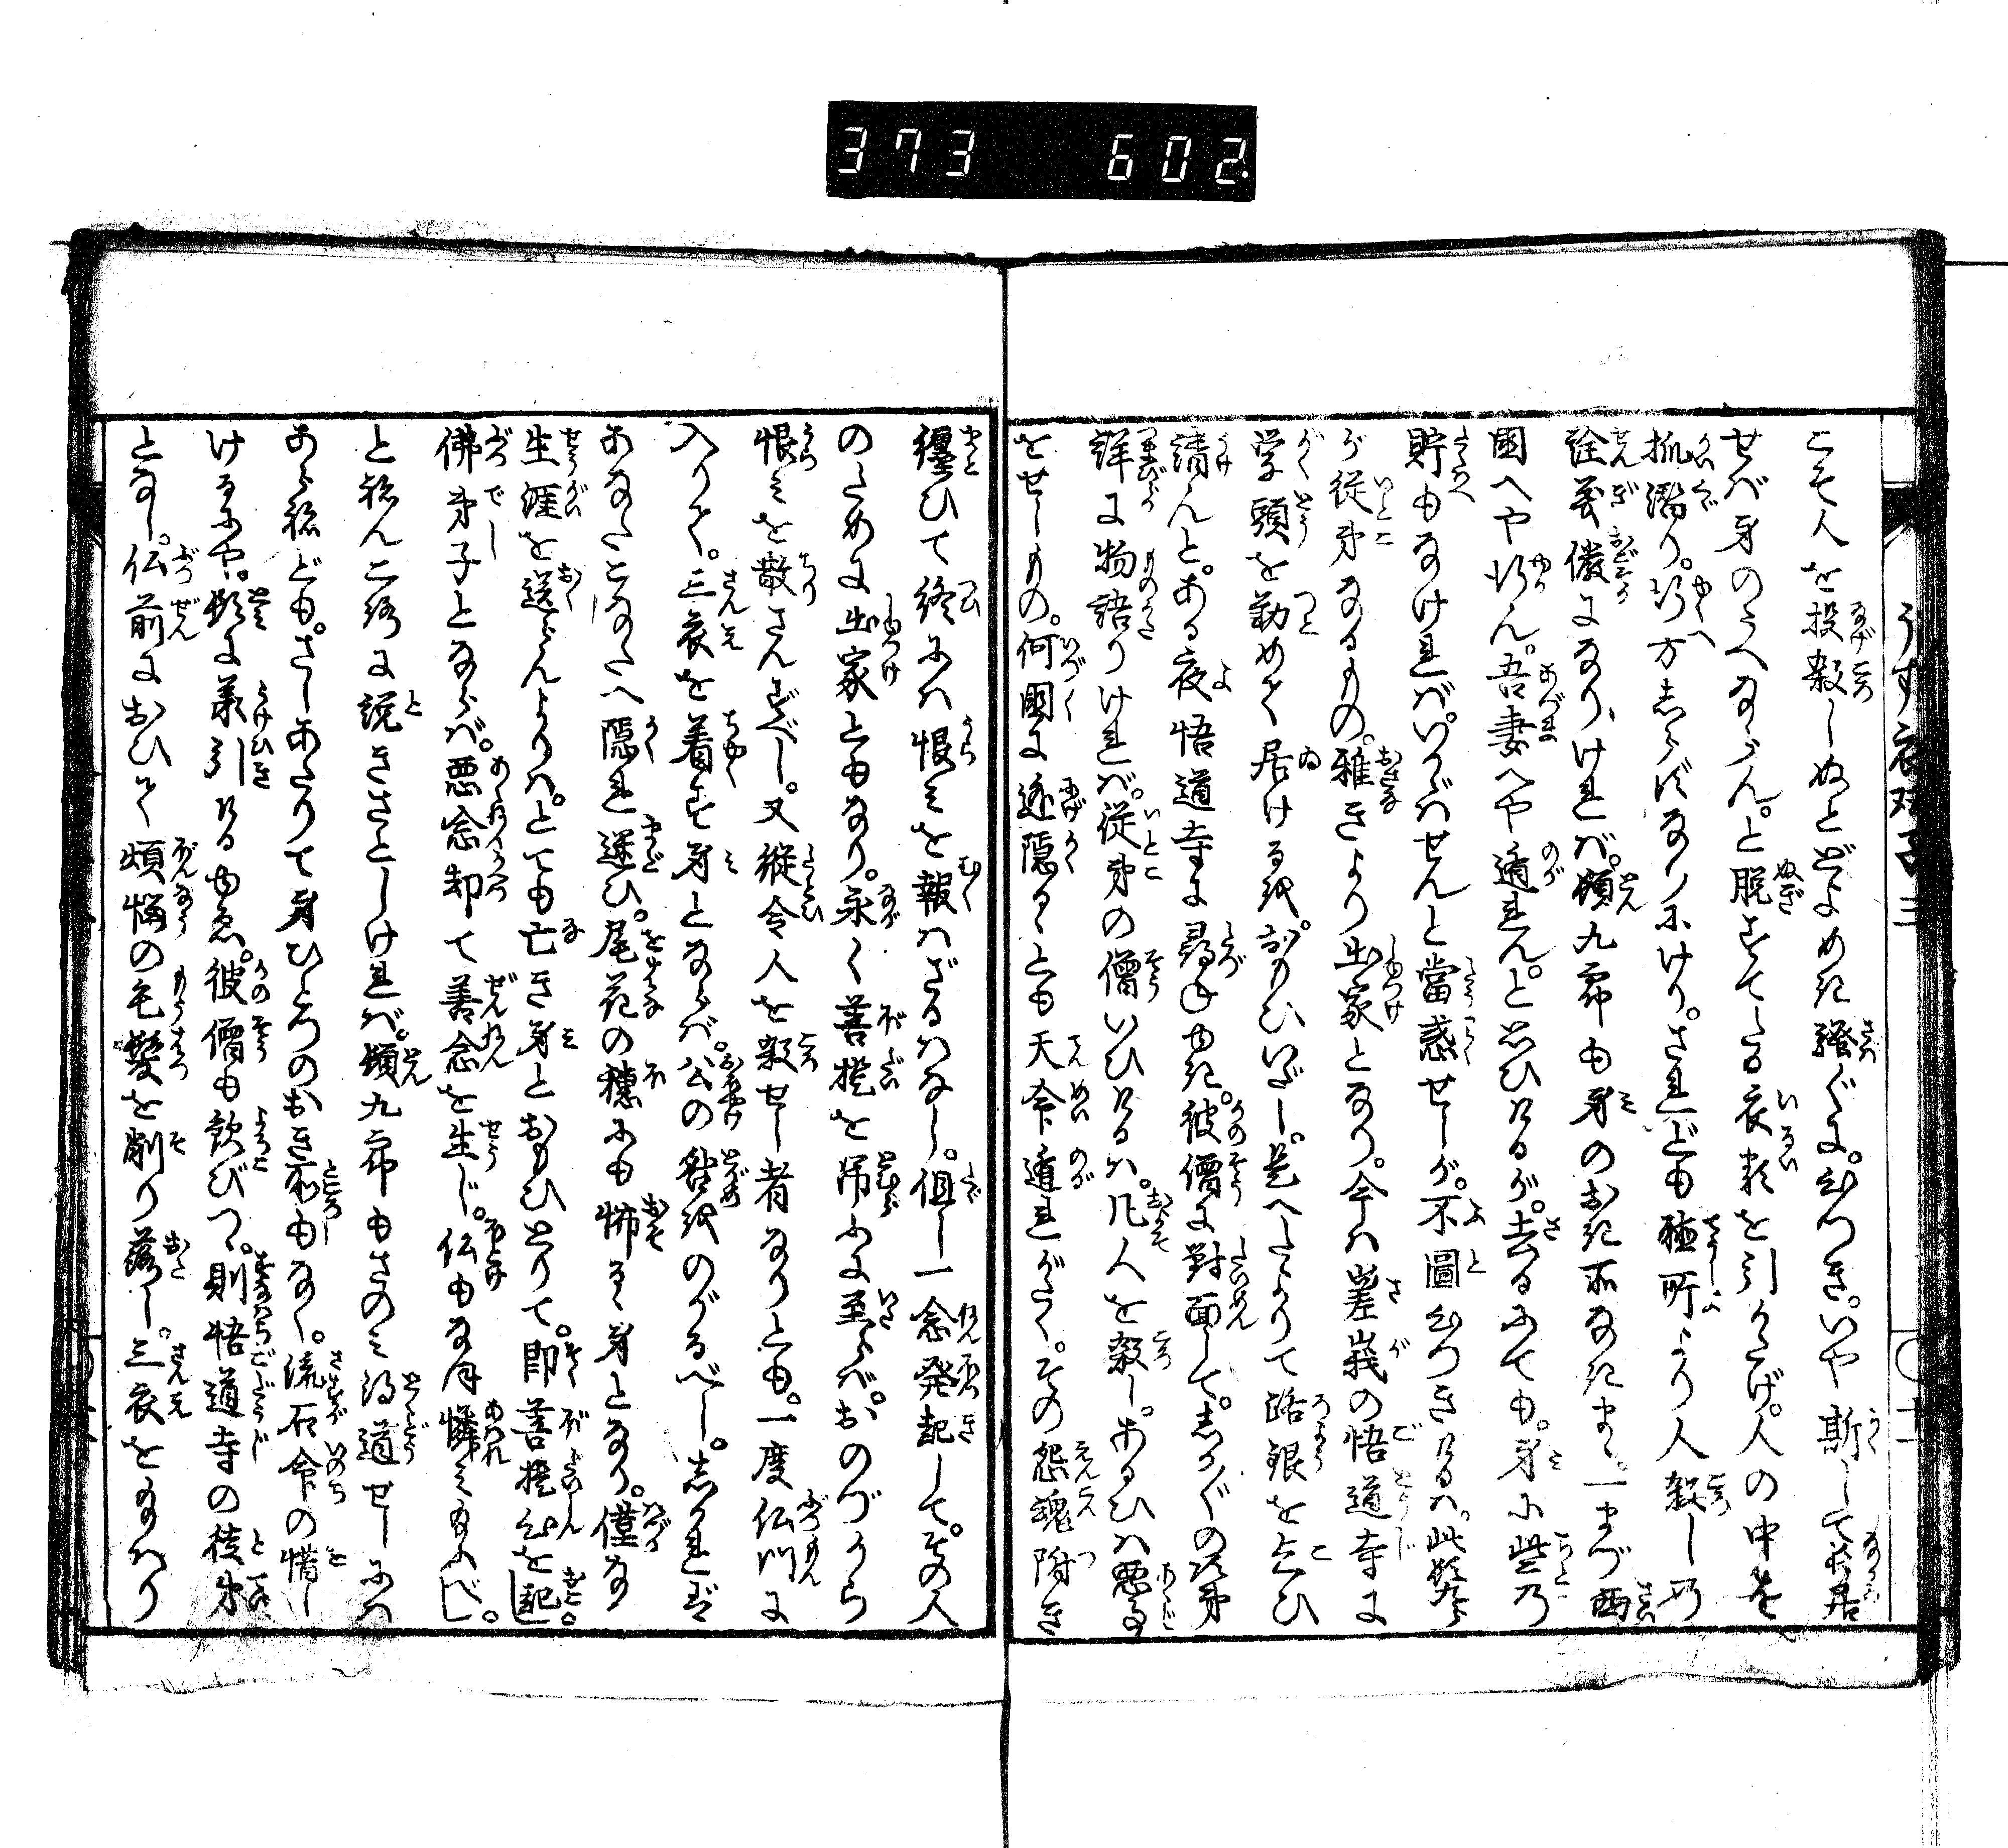 373 602.
うす衣双子三 〇十一
こそ人を投殺しぬとどよめき騒ぐに。心つき。いや斯して長居
せば身のうへならん。と脱すてたる衣類を引かゝげ。人の中を
抓潜り。行方しらずなりにけり。されども極所より人殺しの
詮義儼になりければ。頓九郎も身のおき所なきまゝ。一まづ西
国へや行ん。吾妻へや遁れん。と思ひけるが。去るにても。身に些の
貯もなければ。いかゞはせんと當惑せしが。不圖心つきけるは。此
が従弟なるもの。雅きより出家となり。今は嵯峨の悟道寺に
学頭を勤めて居けるを。おもひいだし。是へたよりて路銀を乞ひ
請んと。ある夜悟道寺に尋ねゆき。彼僧に對面して。しか〴〵の次第
詳に物語りければ。従弟の僧いひけるは。凡人を殺し。あるひは悪事
をせしもの。何国に迯隠るゝとも天命遁れがたく。その怨魂附き
纏ひて終には恨みを報はざるはなし。但し一念発起して。その人
のために出家ともなり。永く菩提を吊ふに至らば。おのづから
恨みを散さんずべし。又縦令人を殺せし者なりとも。一度仏門に
入りて。三衣を着す身とならば。公の咎をのがるべし。しかれば
あなたこなたへ隠れ迷ひ。尾花の穂にも怖るゝ身となり。僅な
生涯を送らんよりは。とても亡き身とおもひとりて。即菩提心を起し。
佛弟子とならば。悪念却て善念を生じ。仏もなほ憐みたまふべし。
と理に説きさとしければ。頓九郎もさのみ得道せしには
あらねども。さしあたりて身ひとつのおき所もなく。流石命の惜し
けるにや。頓に承引けるゆゑ。彼僧も歓びつゝ。則悟道寺の徒弟
となし。仏前におひて煩悩の毛髪を剃り落し。三衣をたまはり